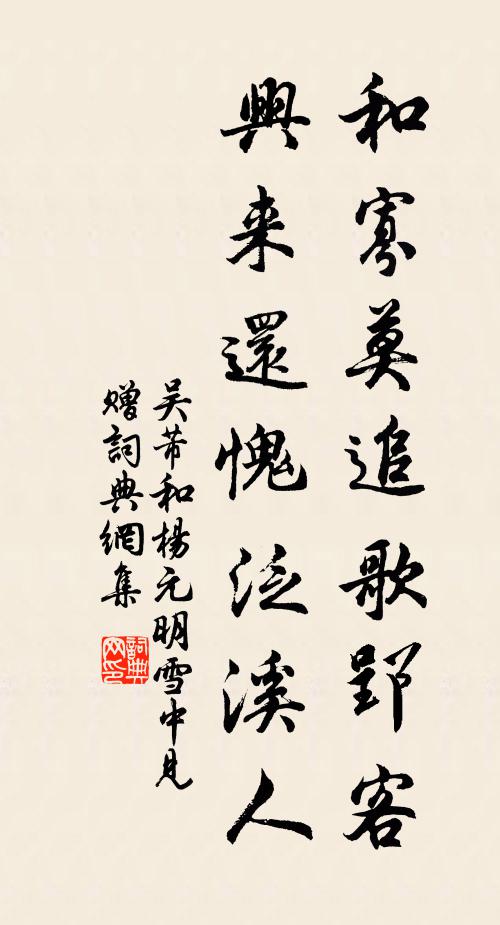 和寡莫追歌郢客
興来還愧泛溪人
吴芾和楊元明雪中見
贈詞典網集
詞典網印